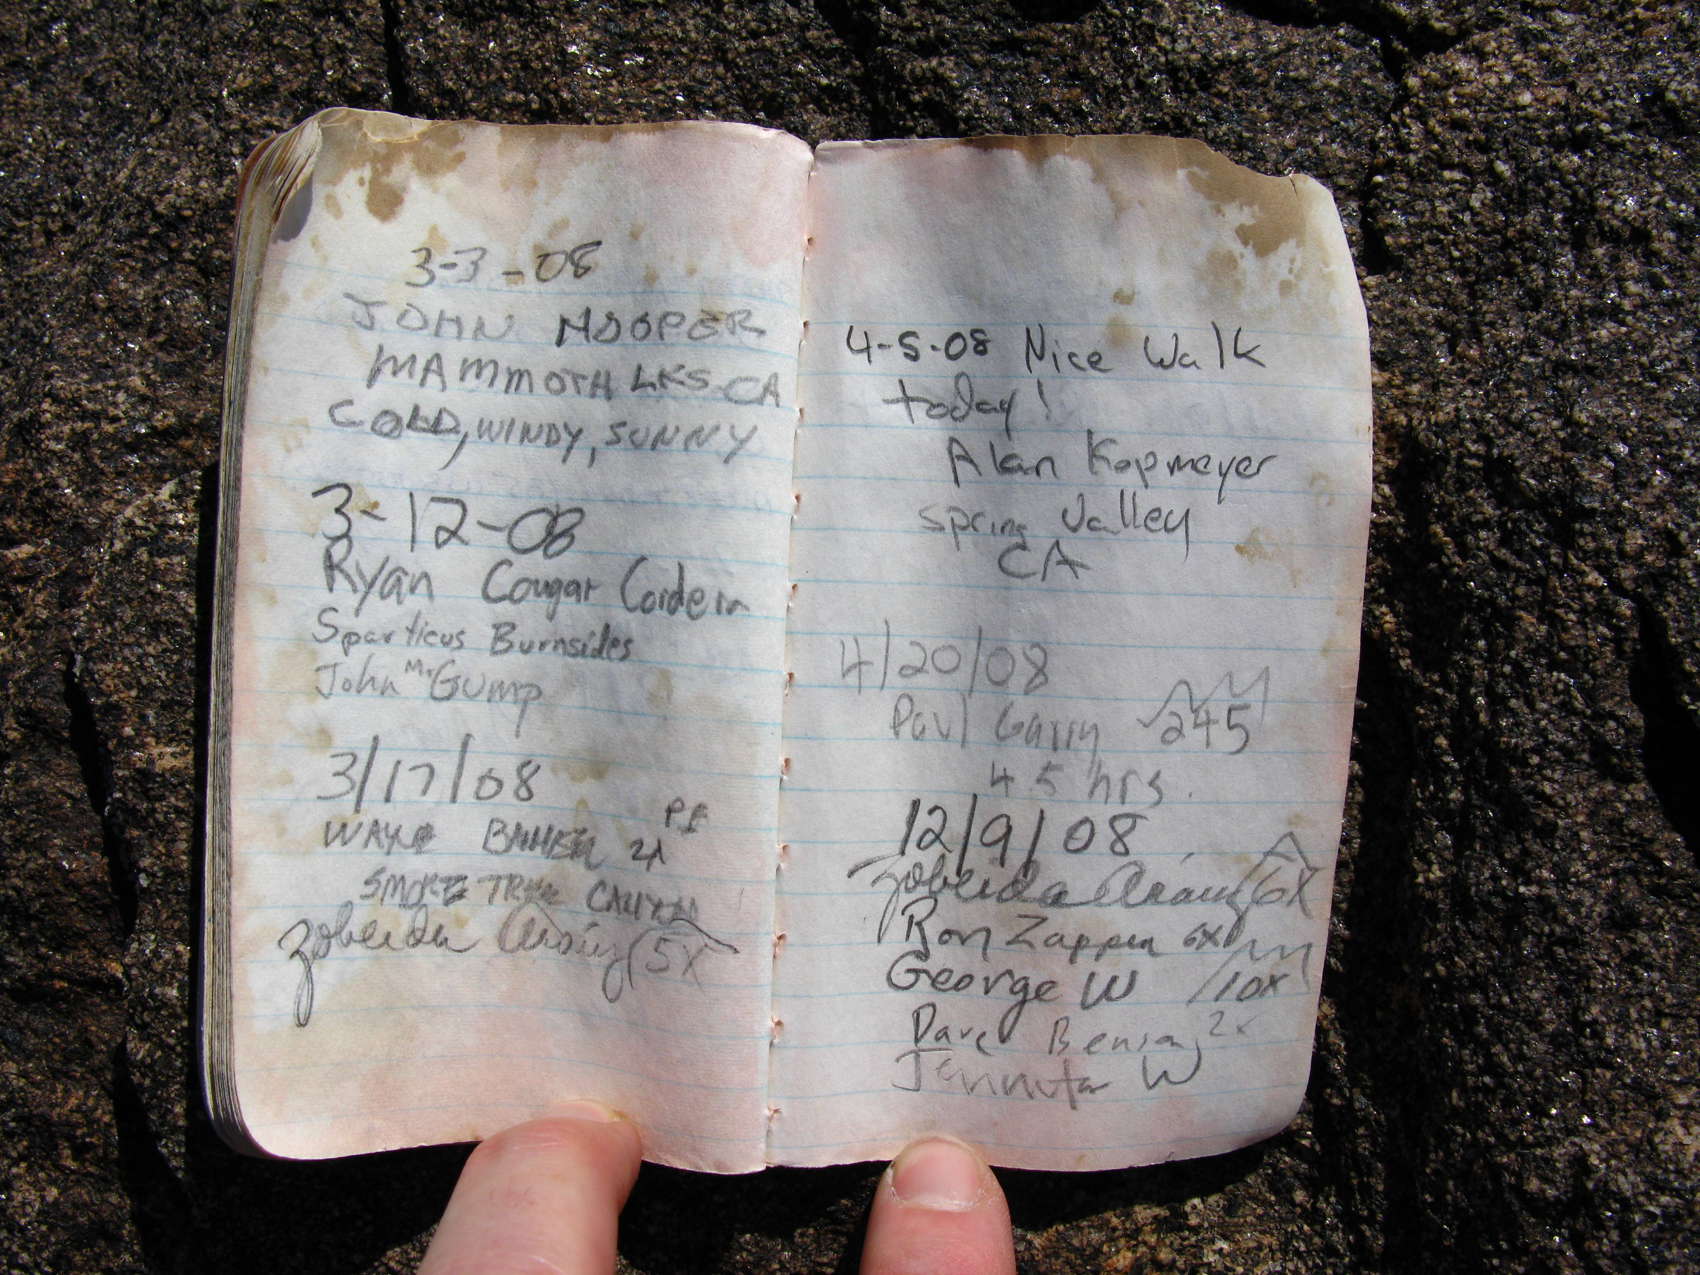 3-3-08
JOHN HOOPER
MAMMOTH LKS. CA
COLD, WINDY, SUNNY
3-12-08
Ryan Cougar
Sparticus Burnsides
John McGump
3/17/08
WAYNE 2X
SMOKE TREE CANYON
Zobeida (5X
4-5-08 Nice Walk
today!
Alan Kopmeyer
Spring Valley
CA
4/20/08
Paul Garry 245
45 hrs.
12/9/08
Zobeida 6X
Ron Zappen 6X
George W 10X
Dave 2x
Jennifer W